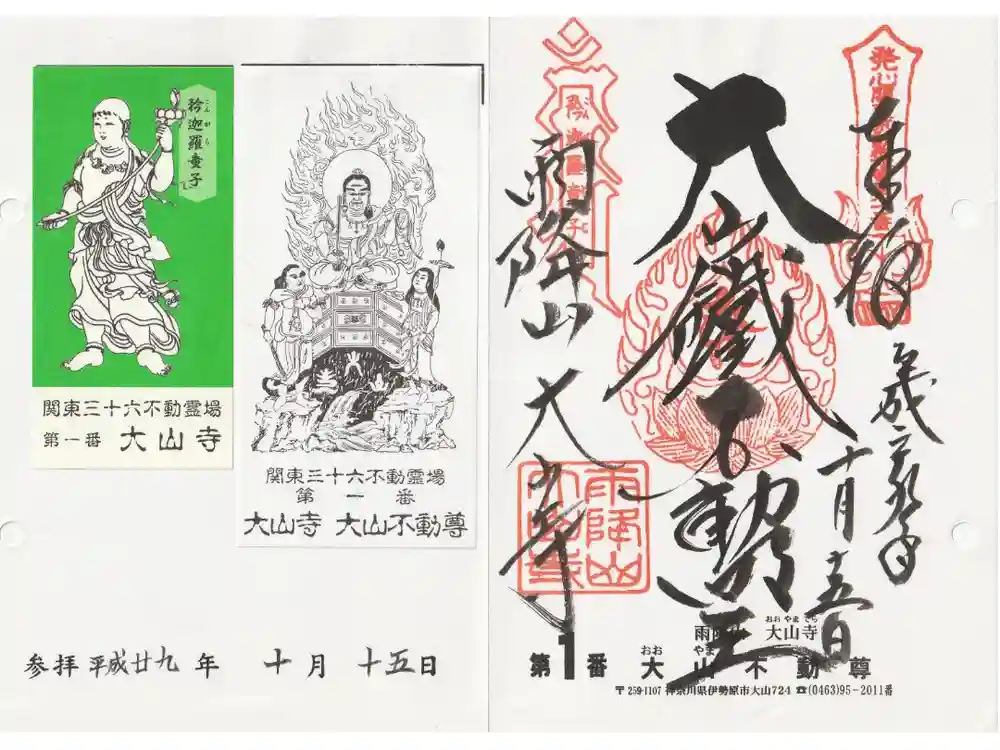 矜迦羅童子
こんがら
関東三十六不動霊場
第一番 大山寺
関東三十六不動霊場
第一番
大山寺 大山不動尊
参拝 平成廿九年 十月 十五日
奉拝
十月十五日
大山鐵不動明王
雨降山
大山寺
雨降山
大山寺
おおやまでら
大山寺
第1番 大山不動尊
おお やま
〒259-1107 神奈川県伊勢原市大山724 ☎(0463)95-2011番